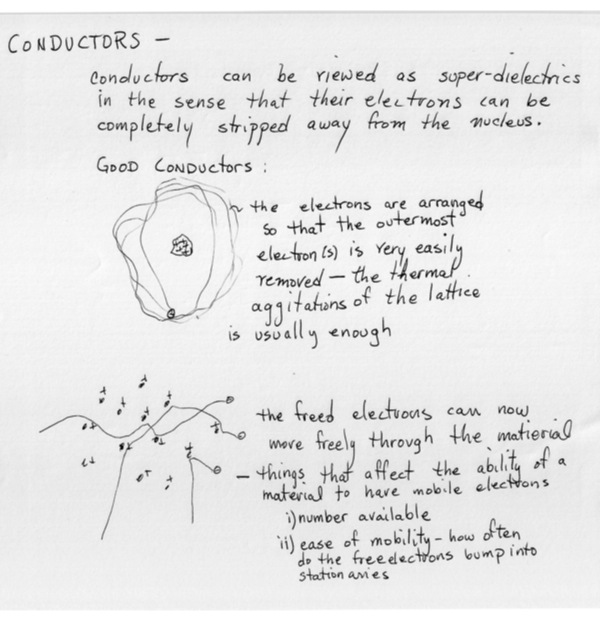 CONDUCTORS -
Conductors can be viewed as super-dielectrics
in the sense that their electrons can be
completely stripped away from the nucleus.
GOOD CONDUCTORS :
the electrons are arranged
so that the outermost
electron(s) is very easily
removed - the thermal
aggitations of the lattice
is usually enough
the freed electrons can now
move freely through the matierial
- things that affect the ability of a
material to have mobile electrons
i) number available
ii) ease of mobility - how often
do the free electrons bump into
stationaries